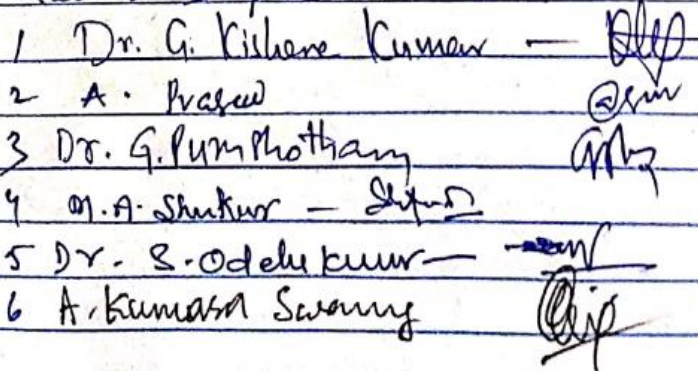 1 Dr. G. Kishore Kumar —
2 A. Prasad
3 Dr. G. Purushotham
4 M.A. Shukur —
5 Dr. S. Odelu Kumar —
6 A. Kumara Swamy